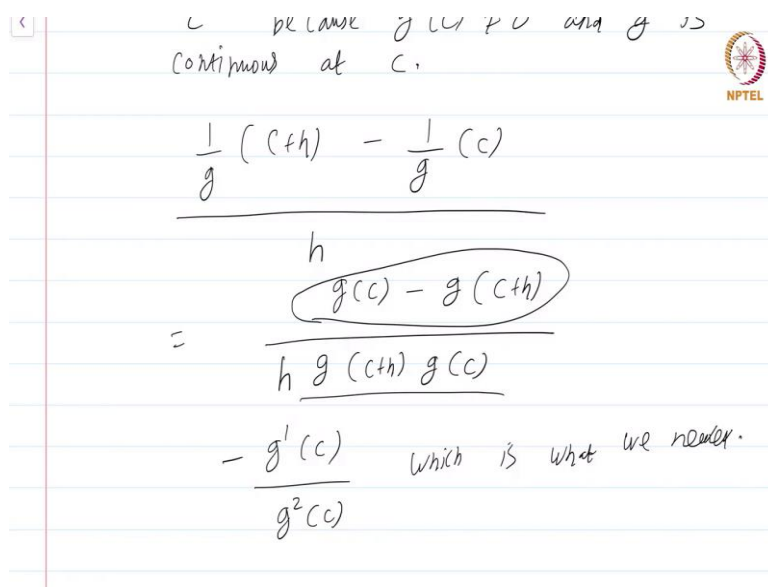 because g(c) ≠ 0 and g is
continuous at c.
NPTEL
1/g (c+h) - 1/g (c)
h
g(c) - g(c+h)
=
h g(c+h) g(c)
- g'(c) / g²(c) which is what we needed.